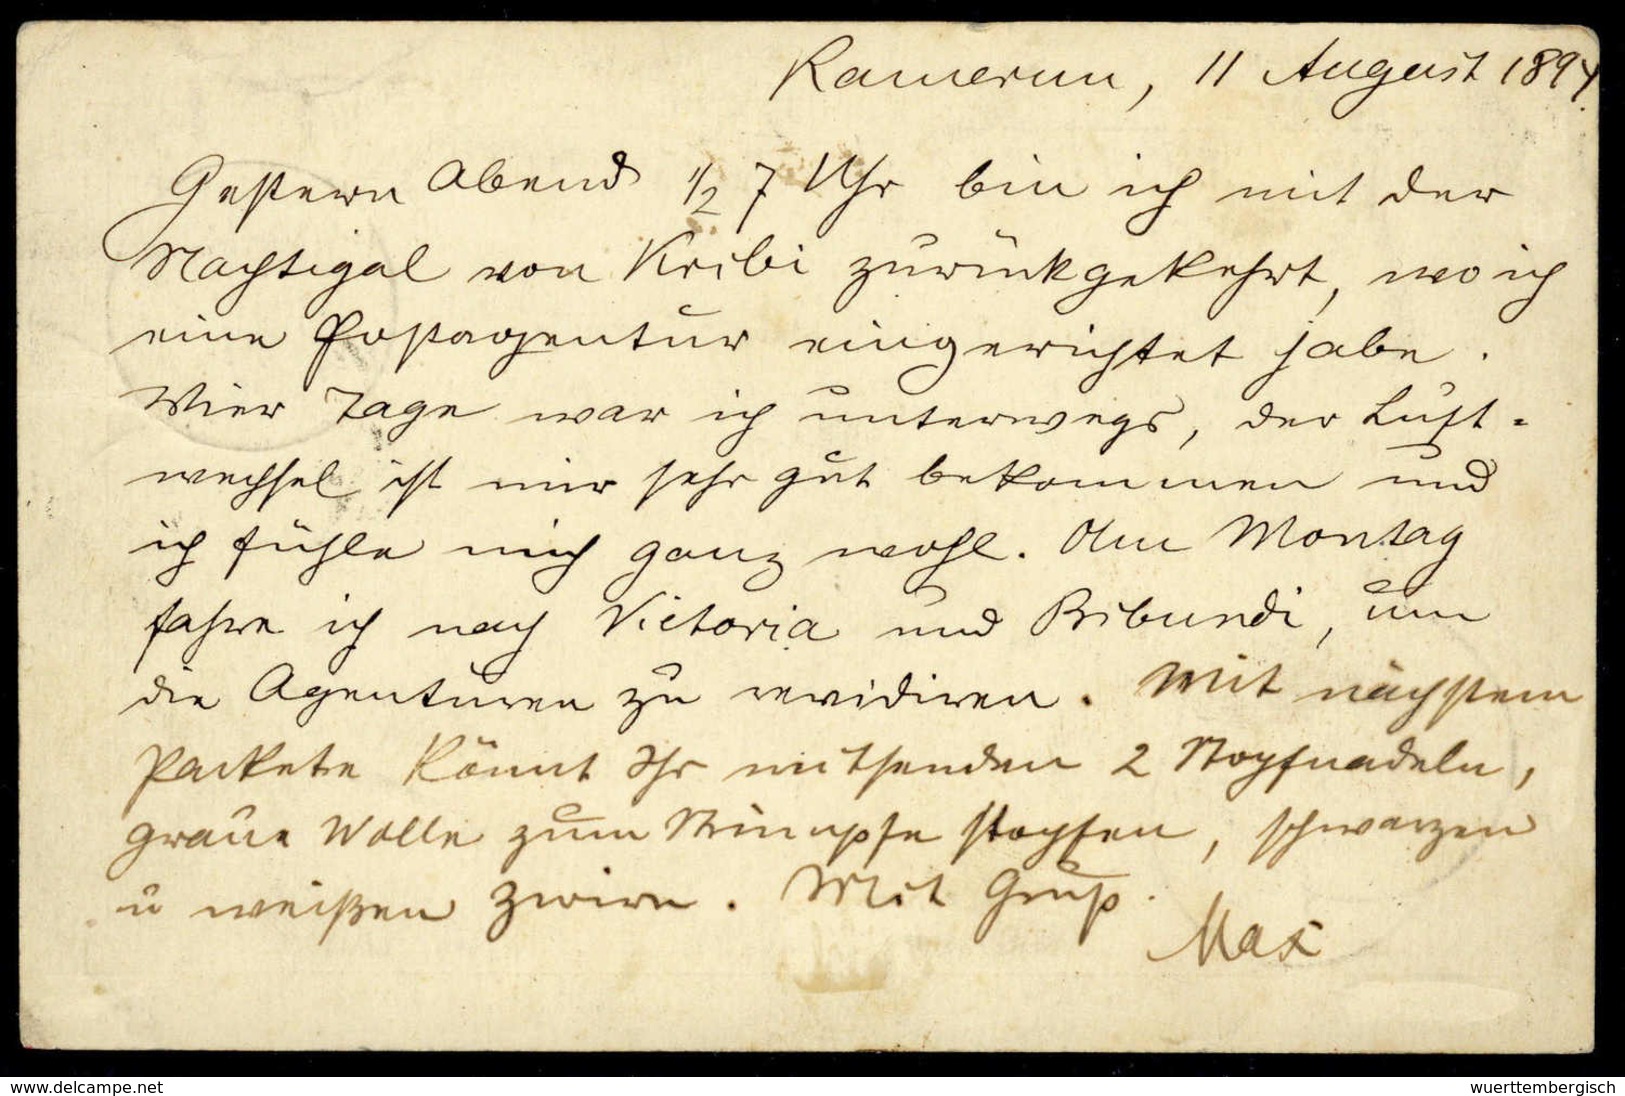 Kamerun, 11 August 1894.
Gestern Abend ½ 7 Uhr bin ich mit der
Nachtigal von Kribi zurückgekehrt, wo ich
eine Postagentur eingerichtet habe.
Vier Tage war ich unterwegs, der Luft-
wechsel ist mir sehr gut bekommen und
ich fühle mich ganz wohl. Am Montag
fahre ich nach Victoria und Bibundi, um
die Agenturen zu revidiren. Mit nächstem
Packete könnt Ihr mitsenden 2 Stopfnadeln,
graue Wolle zum Strümpfe stopfen, schwarzen
u weißen Zwirn. Mit Gruß.
Max
www.delcampe.net
wuerttembergisch